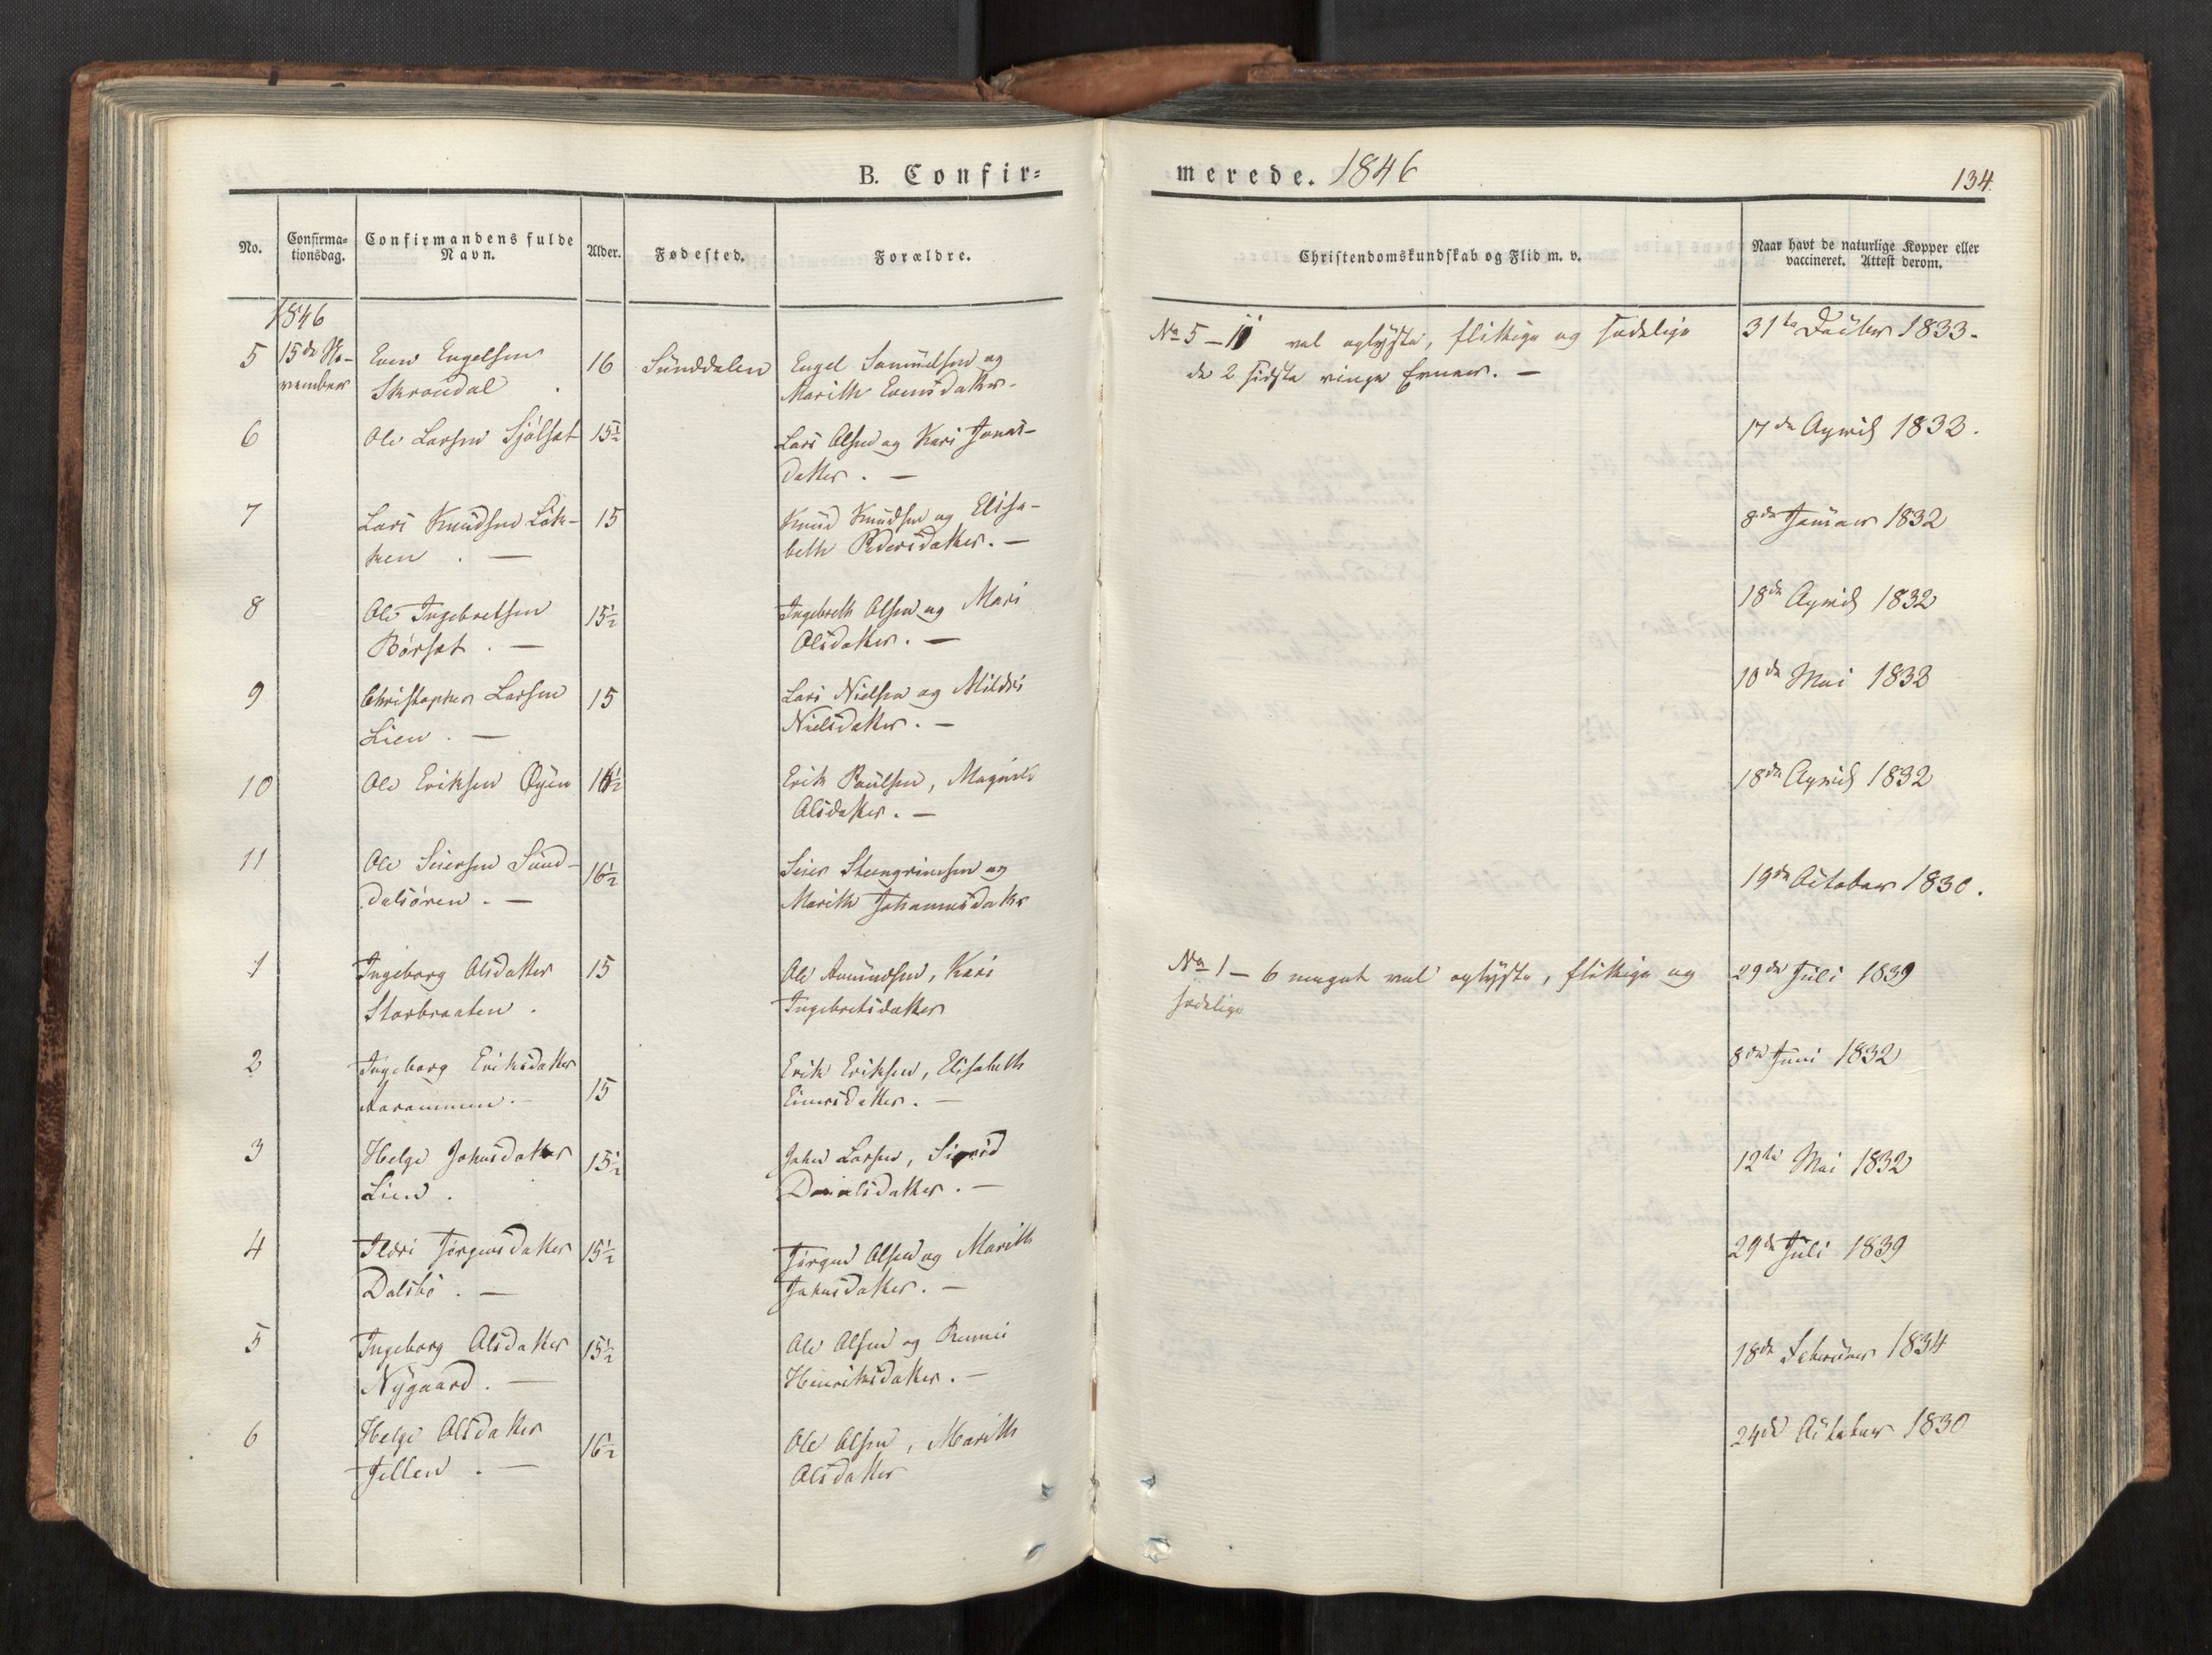 B. Confir=
merede. 1846
134.
No.
Confirma=
tionsdag.
Confirmandens fulde
Navn.
Alder.
Fødested.
Forældre.
Christendomskundskab og Flid m. v.
Naar havt de naturlige Kopper eller
vaccineret. Attest derom.
1846
5 15de No- Even Engelsen 16 Sunddalen Engel Samuelsen og
vember Skrondal . Marith Evensdatter.
No 5 – 11 vel oplyste, flittige og sædelige
de 2 sidste ringe Evner. —
31te Decber 1833.
6 Ole Larsen Sjølset 15½ Lars Olsen og Kari Jonas-
datter. —
17de April 1832.
7 Lars Knudsen Løk- 15 Knud Knudsen og Elisa-
ken . — beth Pedersdatter. —
8de Januar 1832
8 Ole Ingebretsen 15½ Ingebreth Olsen og Mari
Børset . — Olsdatter. —
18de April 1832
9 Christopher Larsen 15 Lars Nielsen og Mildri
Lien . — Nielsdatter. —
10de Mai 1832
10 Ole Eriksen Øyen Erik Paulsen, Magnild
Olsdatter. —
18de April 1832
11 Ole Seiersen Sund- 16½ Seier Steengrimsen og
dalsøren. — Marith Johannesdatter
19de October 1830.
1 Ingeborg Olsdatter 15 Ole Amundsen, Kari
Storbraaten . Ingebretsdatter
No 1 – 6 meget vel oplyste, flittige og
sædelige
29de Juli 1839
2 Ingeborg Eriksdatter 15 Erik Eriksen, Elisabeth
Einersdatter. —
8de Juni 1832
3 Helge Johnsdatter 15½ John Larsen, Sigrid
Lien . Danielsdatter. —
12te Mai 1832
4 Ildri Jørgensdatter 15½ Jørgen Olsen og Marith
Dalsbø . — Johnsdatter. —
29de Juli 1839
5 Ingeborg Olsdatter 15½ Ole Olsen og
Nygaard. — Henriksdatter. —
18de Februar 1834
6 Helge Olsdatter 16½ Ole Olsen, Marith
Jellen . — Olsdatter
24de October 1830